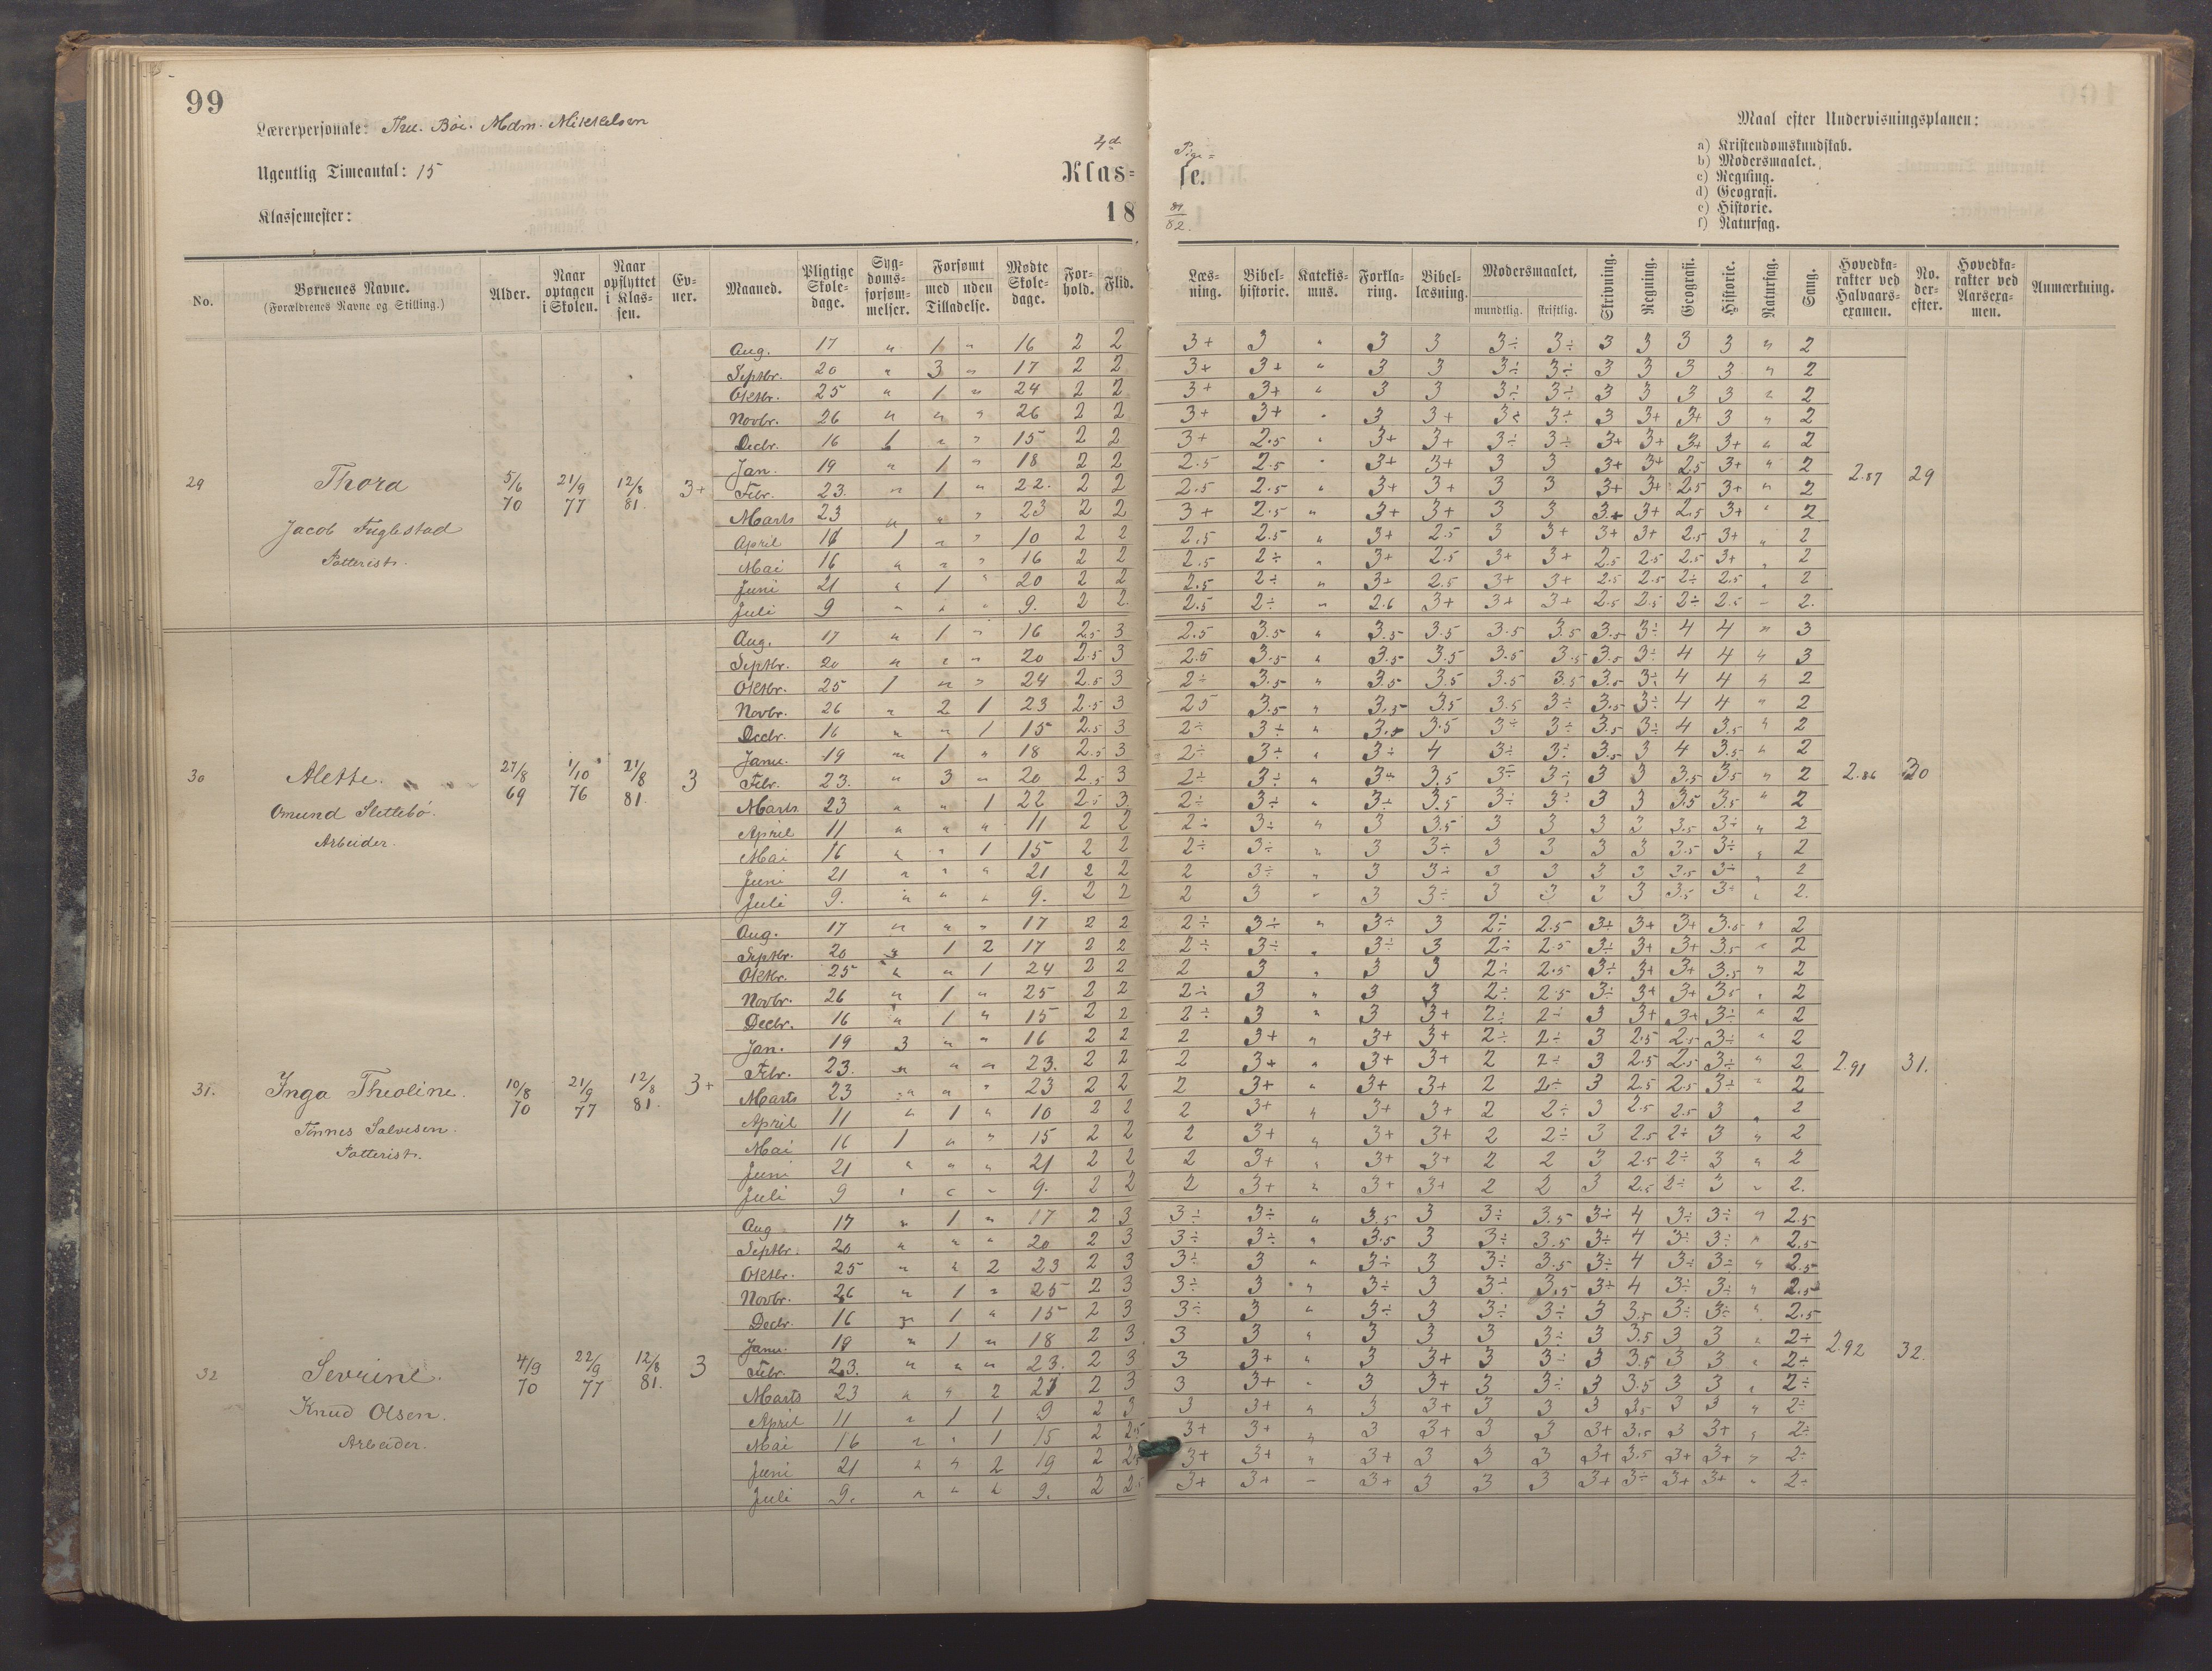 99
Lærerpersonale: Thu. Böe. Mdm. Mikkelsen
Ugentlig Timeantal: 15
Klassemester:
4d Pige=
Klas= se.
18 81/82.
Maal efter Undervisningsplanen:
a) Kristendomskundskab.
b) Modersmaalet.
c) Regning.
d) Geografi.
e) Historie.
f) Naturfag.
No. | Børnenes Navne. (Forældrenes Navne og Stilling.) | Alder. | Naar optagen i Skolen. | Naar opflyttet i Klassen. | Evner. | Maaned. | Pligtige Skoledage. | Sygdomsforsømmelser. | Forsømt med uden Tilladelse. | Mødte Skoledage. | Forhold. | Flid. | Læsning. | Bibelhistorie. | Katekismus. | Forklaring. | Bibellæsning. | Modersmaalet, mundtlig. skriftlig. | Skrivning. | Regning. | Geografi. | Historie. | Naturfag. | Sang. | Hovedkarakter ved Halvaarsexamen. | No. derefter. | Hovedkarakter ved Aarsexamen. | Anmærkning.
29 Thora 5/6 70 21/9 77 12/8 81. 3+ 2.87 29
Jacob Fuglestad
Potterist.
Aug. 17 " 1 " 16 2 2 3+ 3 " 3 3 3÷ 3÷ 3 3 3 3 " 2
Septbr. 20 " 3 " 17 2 2 3+ 3+ " 3 3 3÷ 3÷ 3 3 3 3 " 2
Oktbr. 25 " 1 " 24 2 2 3+ 3+ " 3 3 3÷ 3÷ 3 3 3 3 " 2
Novbr. 26 " " " 26 2 2 3+ 3+ " 3 3+ 3÷ 3÷ 3 3+ 3+ 3 " 2
Decbr. 16 1 " " 15 2 2 3+ 2.5 " 3+ 3+ 3÷ 3÷ 3+ 3+ 3+ 3+ " 2
Jan. 19 " 1 " 18 2 2 2.5 2.5 " 3+ 3+ 3 3 3+ 3+ 2.5 3+ " 2
Febr. 23. " 1 " 22. 2 2 2.5 2.5 " 3+ 3+ 3 3 3+ 3+ 2.5 3+ " 2
Marts 23 " " " 23 2 2 3+ 2.5 " 3+ 3+ 3 3 3+ 3+ 2.5 3+ " 2
April 11 1 " " 10 2 2 2.5 2.5 " 3+ 2.5 3 3+ 3+ 3+ 2.5 3+ " 2
Mai 16 " " " 16 2 2 2.5 2÷ " 3+ 2.5 3+ 3+ 2.5 2.5 2.5 3+ " 2
Juni 21 " 1 " 20 2 2 2.5 2÷ " 3+ 2.5 3+ 3+ 2.5 2.5 2÷ 2.5 " 2
Juli 9 " " " 9. 2 2. 2.5 2÷ " 2.6 3+ 3+ 3+ 2.5 2.5 2÷ 2.5 " 2.
30 Alette. 27/8 69 1/10 76 21/8 81. 3 2.86 30
Omund Slettebö.
Arbeider.
Aug. 17 " 1 " 16 2.5 3 2.5 3.5 " 3.5 3.5 3.5 3.5 3.5 3÷ 4 4 " 3
Septbr. 20 " " " 20 2.5 3 2.5 3.5 " 3.5 3.5 3.5 3.5 3.5 3÷ 4 4 " 3
Oktbr. 25 1 " " 24 2.5 3 2÷ 3.5 " 3.5 3.5 3.5 3.5 3.5 3÷ 4 4 " 2
Novbr. 26 " 2 1 23 2.5 3 2.5 3.5 " 3.5 3.5 3.5 3÷ 3.5 3÷ 4 4 " 2
Decbr. 16 " " 1 15 2.5 3 2÷ 3÷ " 3.5 3.5 3÷ 3÷ 3.5 3÷ 4 3.5 " 2
Janu. 19 " 1 " 18 2.5 3 2÷ 3÷ " 3÷ 4 3÷ 3÷ 3.5 3 4 3.5 " 2
Febr. 23. " 3 " 20 2.5 3 2÷ 3÷ " 3÷ 3.5 3÷ 3÷ 3 3 3.5 3.5 " 2
Marts 23 " " 1 22 2.5 3 2÷ 3÷ " 3÷ 3.5 3÷ 3÷ 3 3 3.5 3.5 " 2
April 11 " " " 11 2 2 2÷ 3÷ " 3 3.5 3 3 3 3 3.5 3÷ " 2
Mai 16 " " 1 15 2 2 2÷ 3÷ " 3 3÷ 3 3 3 3 3.5 3÷ " 2
Juni 21 " " " 21 2 2 2 3÷ " 3 3÷ 3 3 3 3 3.5 3÷ " 2
Juli 9. " " " 9. 2 2 2 3 " 3 3÷ 3 3 3 3 3.5 3÷ " 2.
31. Inga Theoline. 10/8 70 21/9 77 12/8 81. 3+ 2.91 31.
Tönnes Salvesen.
Potterist.
Aug. 17 " " " 17 2 2 2÷ 3÷ " 3÷ 3 2÷ 2.5 3÷ 3+ 3+ 3.5 " 2
Septbr. 20 " 1 2 17 2 2 2÷ 3÷ " 3÷ 3 2÷ 2.5 3÷ 3+ 3+ 3.5 " 2
Oktbr. 25 " " 1 24 2 2 2 3 " 3 3 2÷ 2.5 3÷ 3+ 3+ 3.5 " 2
Novbr. 26 " 1 " 25 2 2 2÷ 3 " 3 3 2÷ 2.5 3÷ 3+ 3+ 3.5 " 2
Decbr. 16 " 1 " 15 2 2 2÷ 3 " 3 3+ 2÷ 2÷ 3 3+ 3+ 3÷ " 2
Jan. 19 3 " " 16 2 2 2 3+ " 3+ 3+ 2÷ 2÷ 3 2.5 2.5 3÷ " 2
Febr. 23. " " " 23. 2 2 2 3+ " 3+ 3+ 2 2÷ 3 2.5 2.5 3÷ " 2
Marts 23 " " " 23 2 2 2 3+ " 3+ 3+ 2 2÷ 3 2.5 2.5 3÷ " 2
April 11 " 1 " 10 2 2 2 3+ " 3+ 3+ 2 2÷ 3 2.5 2.5 3 " 2
Mai 16 1 " " 15 2 2 2 3+ " 3+ 3+ 2 2÷ 3 2.5 2÷ 3 " 2
Juni 21 " " " 21 2 2 2 3+ " 3+ 3+ 2 2 3 2.5 2÷ 3 " 2
Juli 9 " " " 9. 2 2 2 3+ " 3+ 3+ 2 2 3 2.5 2÷ 3 " 2.
32 Severine. 4/9 70 22/9 77 12/8 81. 3 2.92 32.
Knud Olsen.
Arbeider.
Aug 17 " 1 " 17 2 3 3÷ 3÷ " 3.5 3 3÷ 3.5 3÷ 4 3÷ 3÷ " 2.5
Septbr. 20 " " " 20 2 3 3÷ 3÷ " 3.5 3 3÷ 3.5 3÷ 4 3÷ 3÷ " 2.5
Oktbr. 25 " " 2 23 2 3 3÷ 3 " 3÷ 3 3÷ 3.5 3÷ 4 3÷ 3÷ " 2.5
Novbr. 26 " 1 " 25 2 3 3÷ 3 " 3÷ 3 3÷ 3.5 3÷ 4 3÷ 3÷ " 2.5
Decbr. 16 " 1 " 15 2 3 3÷ 3 " 3÷ 3 3÷ 3÷ 3 3.5 3÷ 3÷ " 2.5
Janu. 19 " 1 " 18 2 3 3 3 " 3 3 3 3÷ 3 3.5 3 3 " 2÷
Febr. 23. " " " 23. 2 3 3 3+ " 3 3+ 3 3÷ 3 3.5 3 3 " 2÷
Marts 23 " " 2 21 2 3 3 3+ " 3 3+ 3 3÷ 3 3.5 3 3 " 2÷
April 11 " 1 1 9 2 3 3 3+ " 3 3+ 3 3 3 3.5 3 3 " 2÷
Mai 16 " " 1 15 2 2.5 3+ 3+ " 3 3+ 3 3 3+ 3.5 3 3+ " 2÷
Juni 21 " " 2 19 2 2.5 3+ 3+ " 3+ 3 3 3 3+ 3.5 3+ 3+ " 2÷
Juli 9. " " " 9. 2 2.5 3+ 3+ " 3+ 3 3 3 3+ 3÷ 3+ 3+ " 2÷